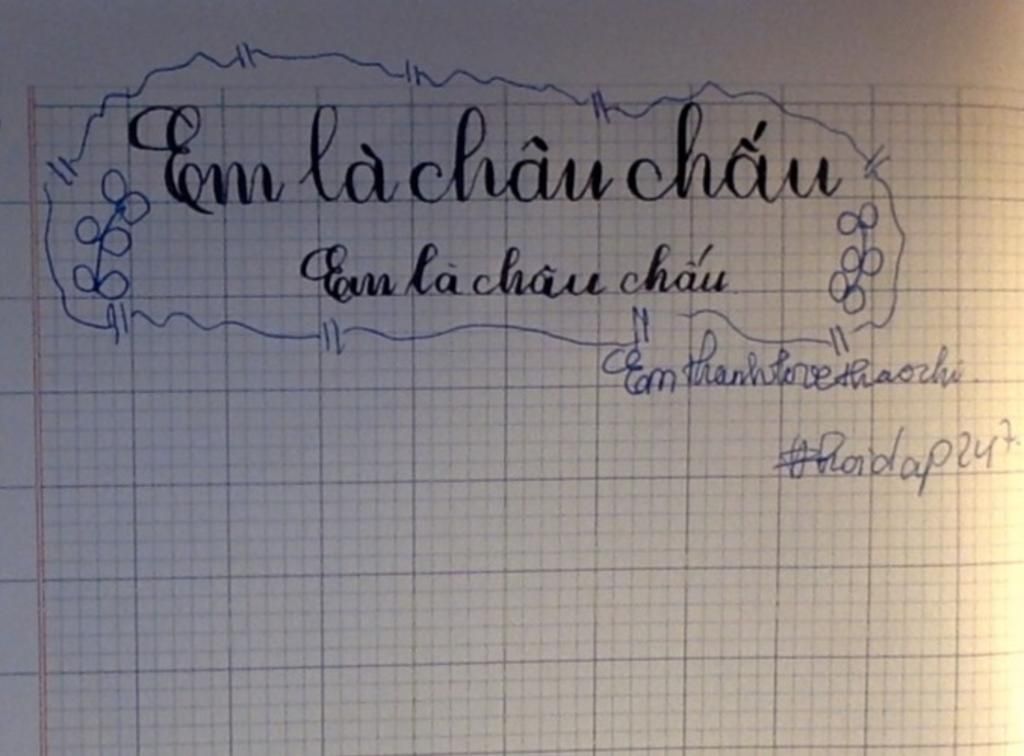 Em là châu chấu
Em là châu chấu
Emthanhlovethaochi
#hoidap247